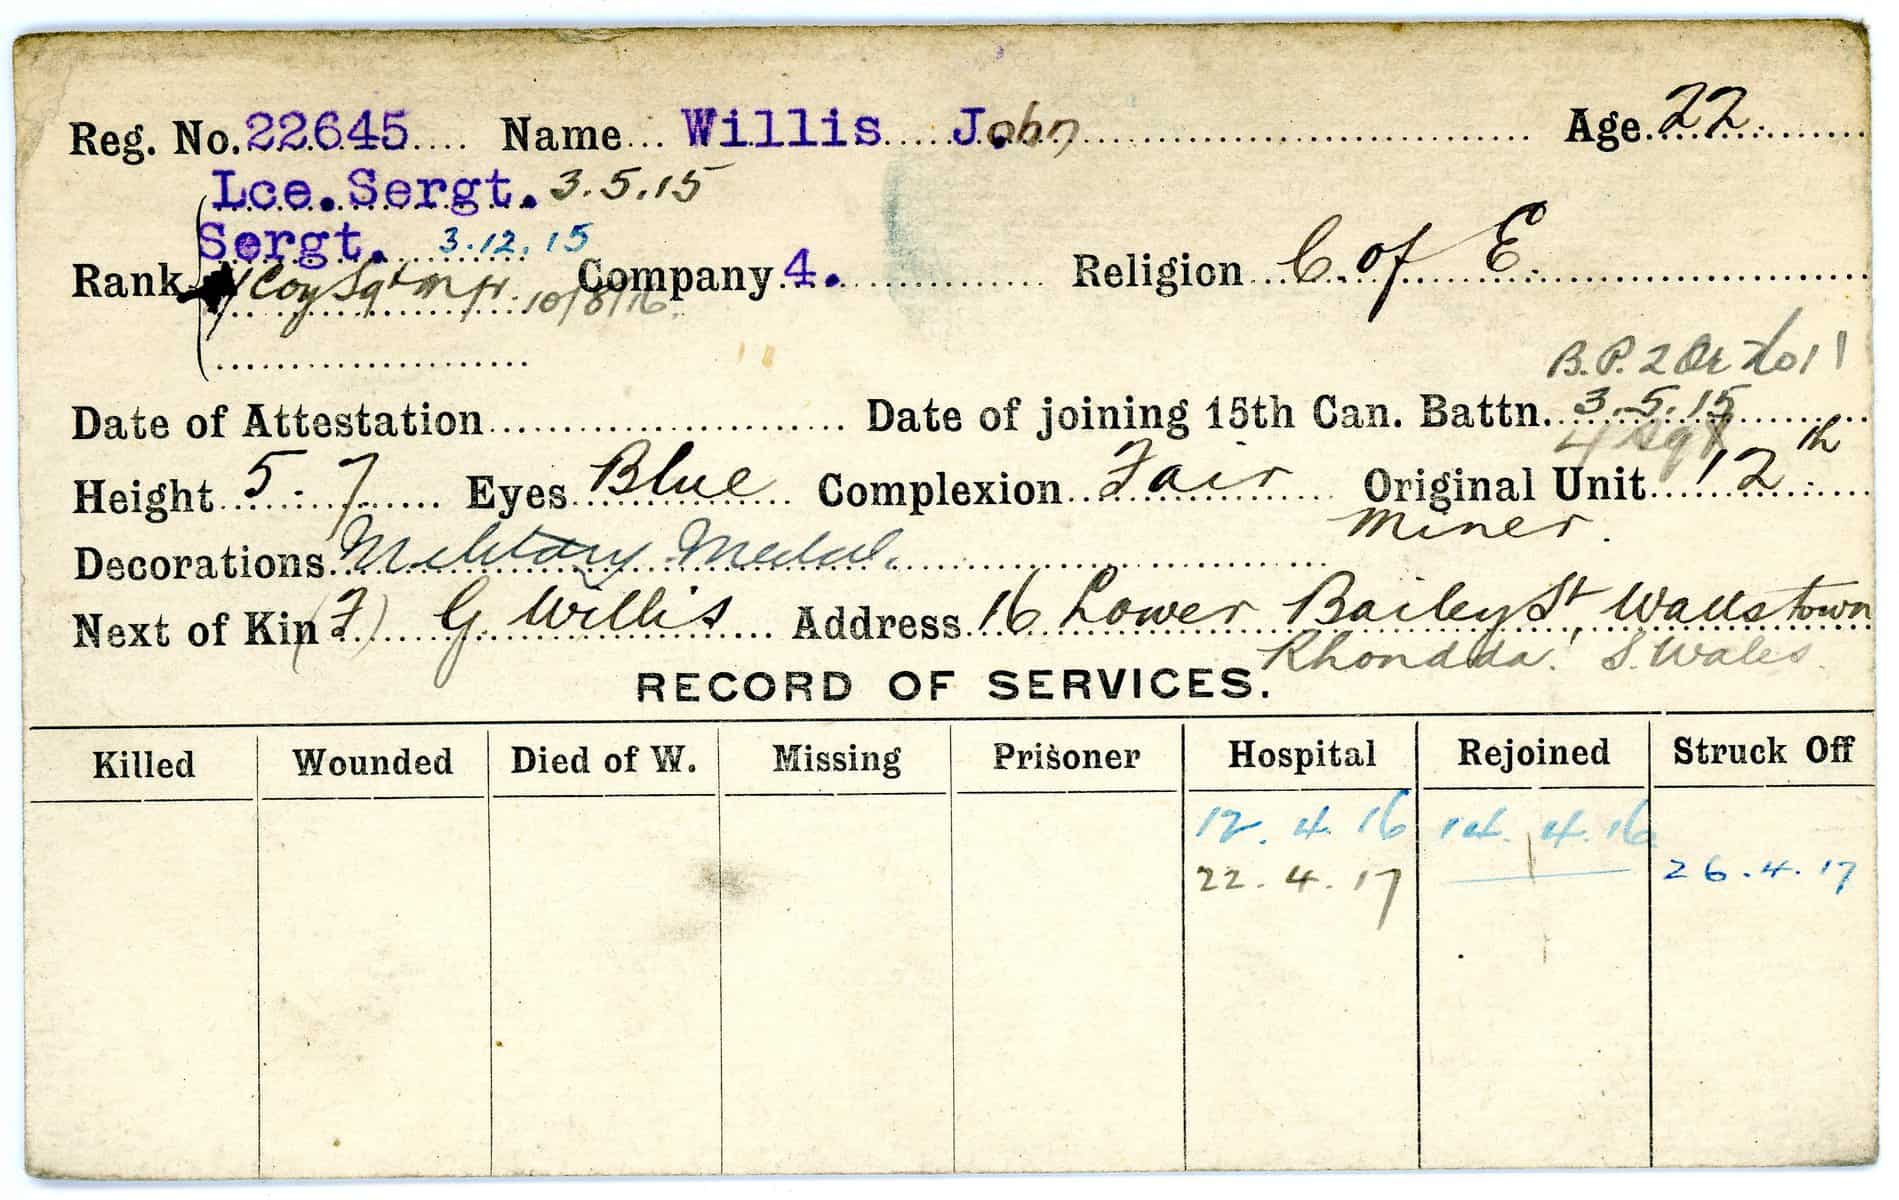 Reg. No. 22645 Name Willis John Age 22
Lce. Sergt. 3.5.15
Sergt. 3.12.15
Rank Coy Sgt Mjr. 10/8/16 Company 4. Religion C. of E.
B.P. 2 Or
Date of Attestation Date of joining 15th Can. Battn. 3.5.15
4 Sgt
Height 5. 7 Eyes Blue Complexion Fair Original Unit 12th
Miner.
Decorations Military Medal.
Next of Kin (F) G Willis Address 16 Lower Bailey St, Wattstown
Rhondda. S. Wales.
RECORD OF SERVICES.
Killed Wounded Died of W. Missing Prisoner Hospital Rejoined Struck Off
12. 4. 16 14. 4. 16
22. 4. 17 26. 4. 17